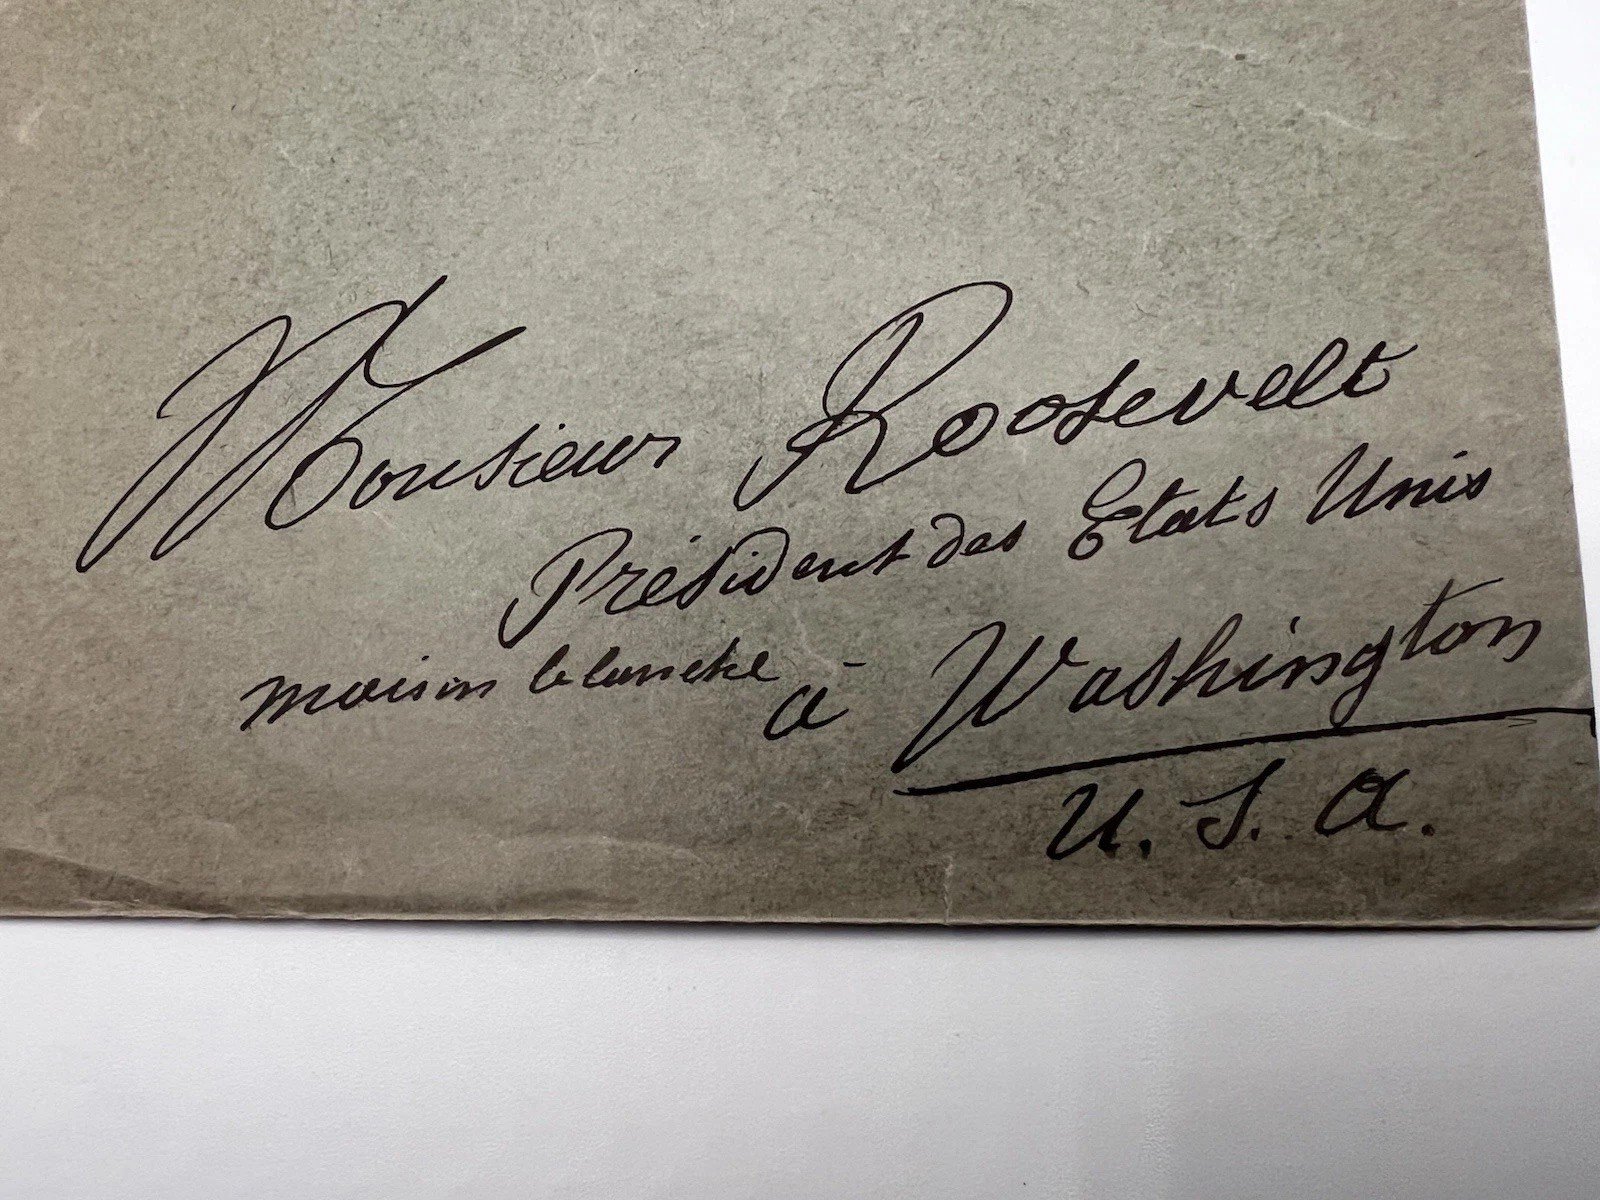 Monsieur Roosevelt
Président des Etats Unis
maison blanche à Washington
U. S. A.